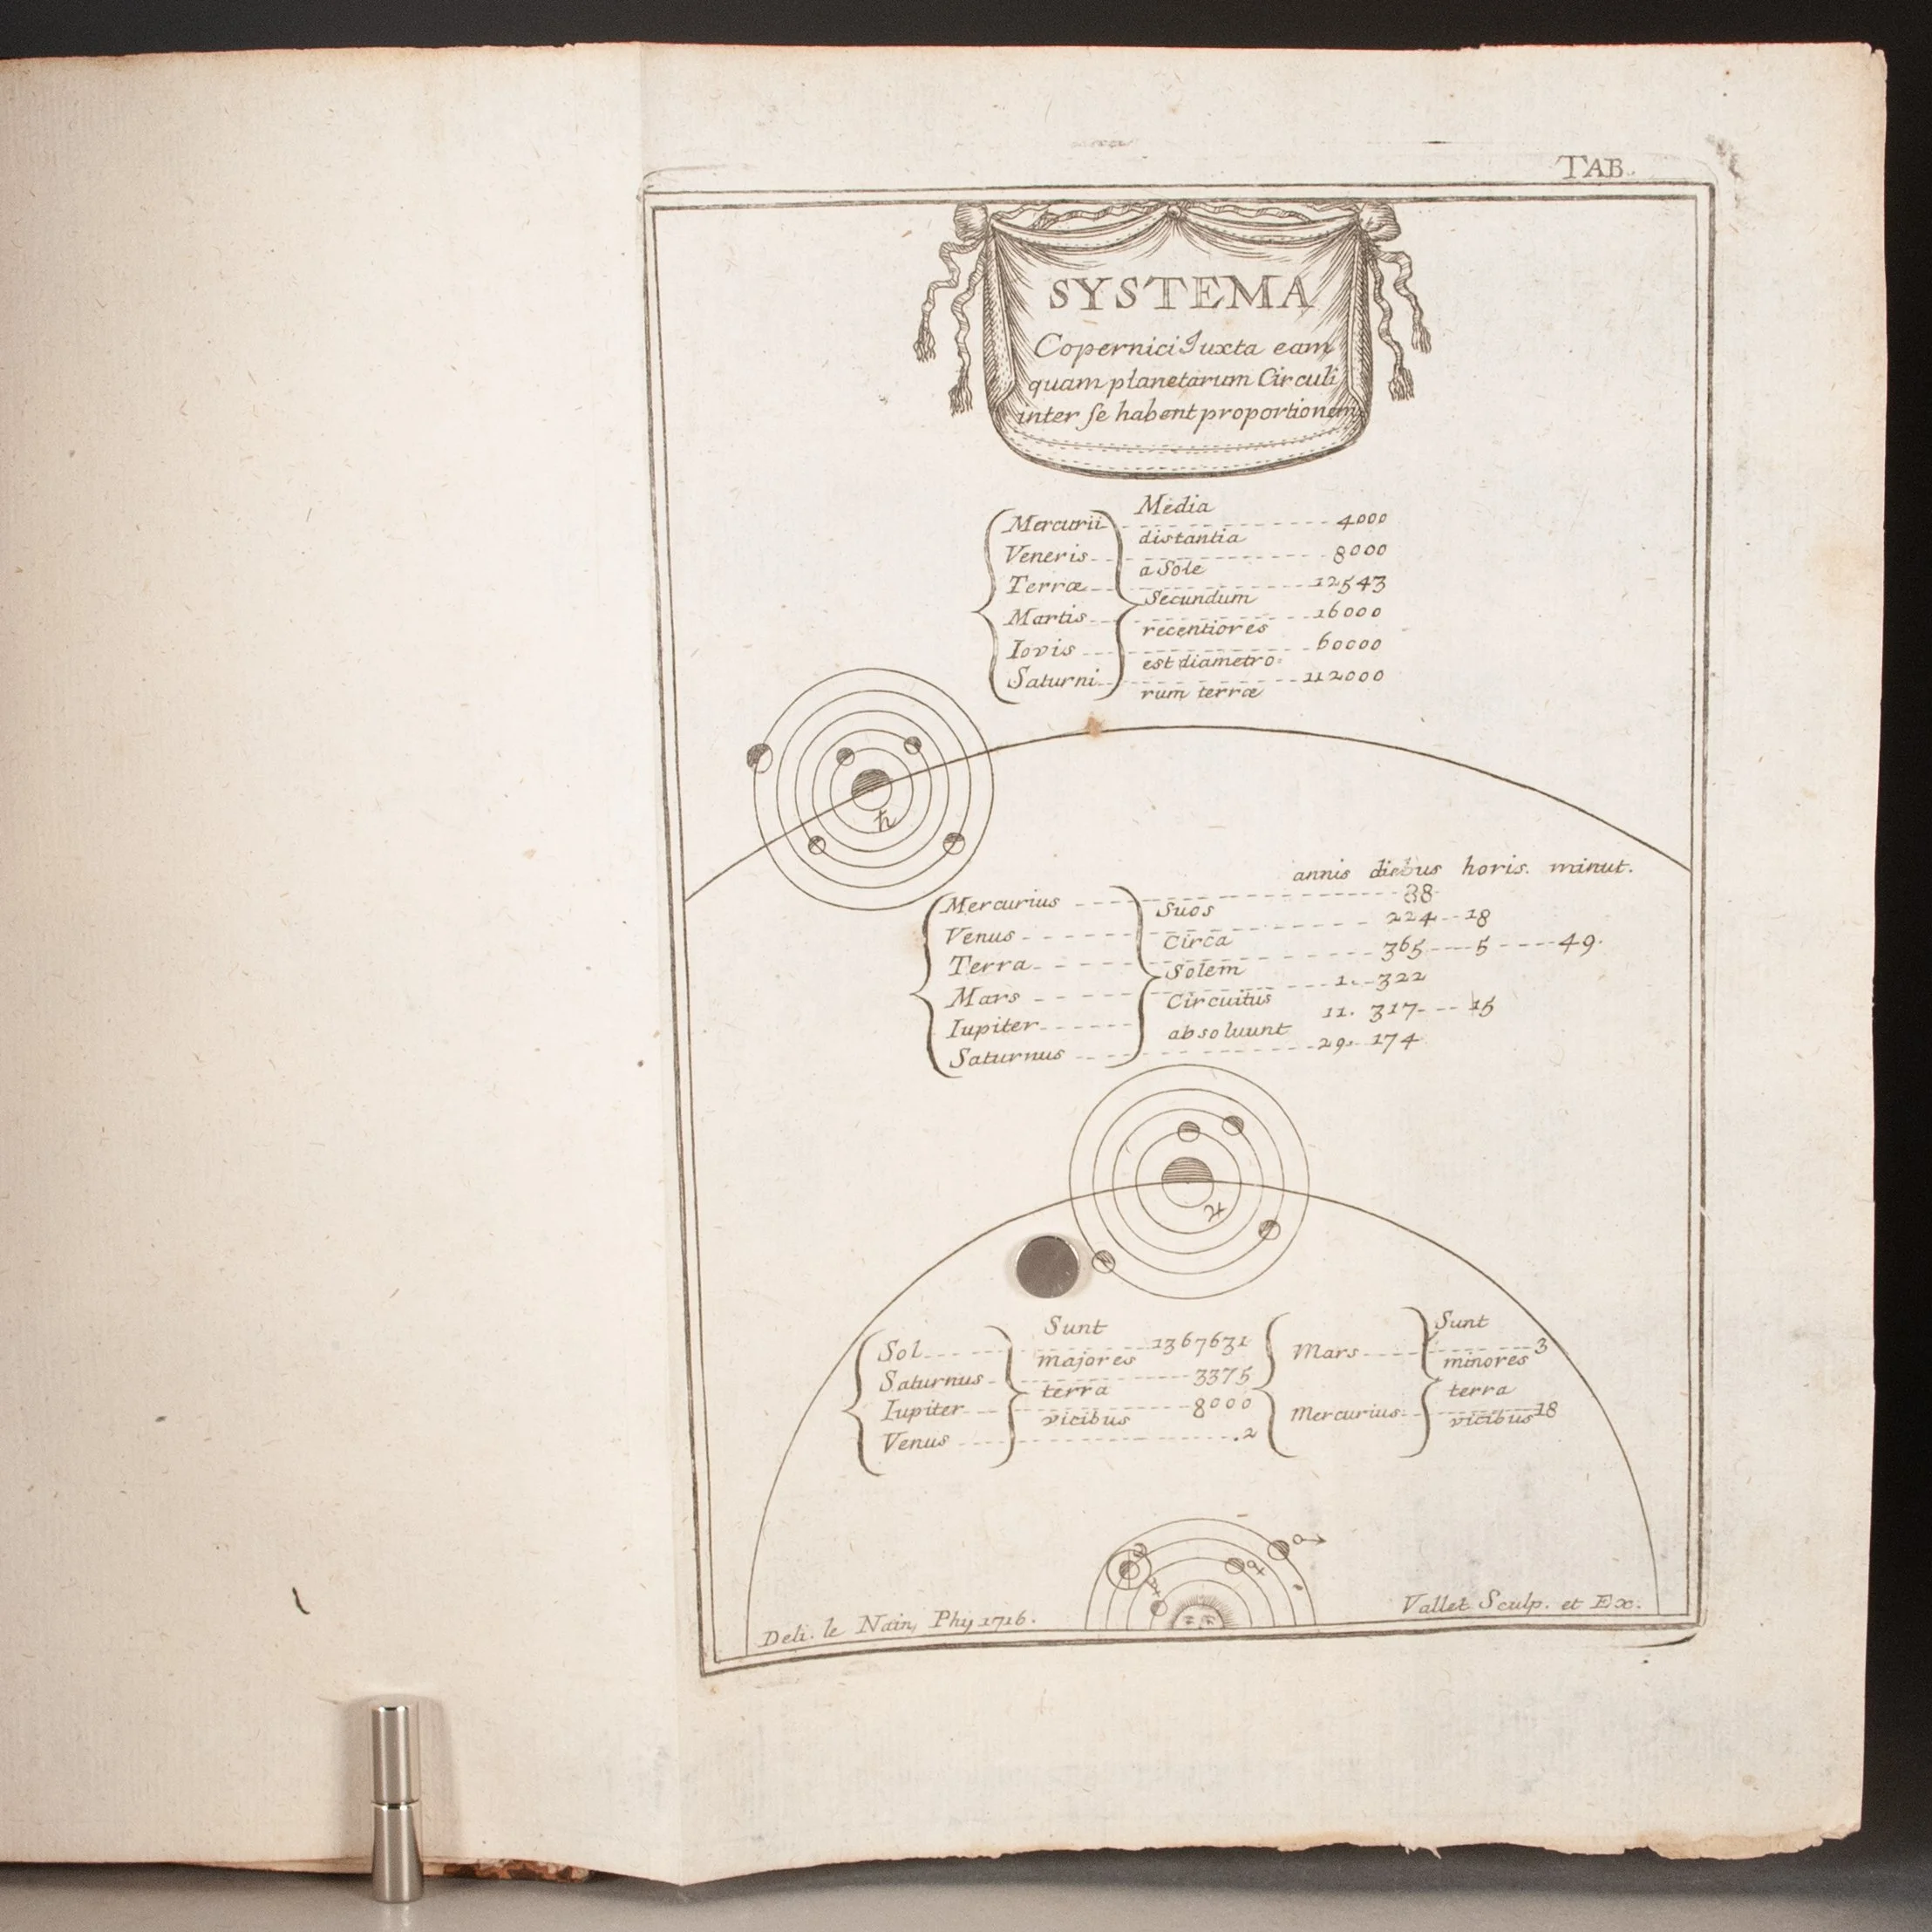 TAB.
SYSTEMA
Copernici Juxta eam
quam planetarum Circuli
inter ſe habent proportionem
Media
Mercurii 4000
distantia
Veneris 8000
a Sole
Terræ 12543
Secundum
Martis 16000
recentiores
Iovis 60000
est diametro
Saturni 112000
rum terræ
♄
annis diebus horis. minut.
Mercurius 88
Suos
Venus 224 18
Circa
Terra 365 5 49.
Solem
Mars 1. 322
Circuitus
Iupiter 11. 317 15
absoluunt
Saturnus 29. 174
♃
Sunt Sunt
Sol 1367631 Mars 3
majores minores
Saturnus 3375
terra terra
Iupiter 8000 Mercurius 18
vicibus vicibus
Venus .2
♂
♀
Deli. le Nain, Phy 1716.
Vallet Sculp. et Ex.